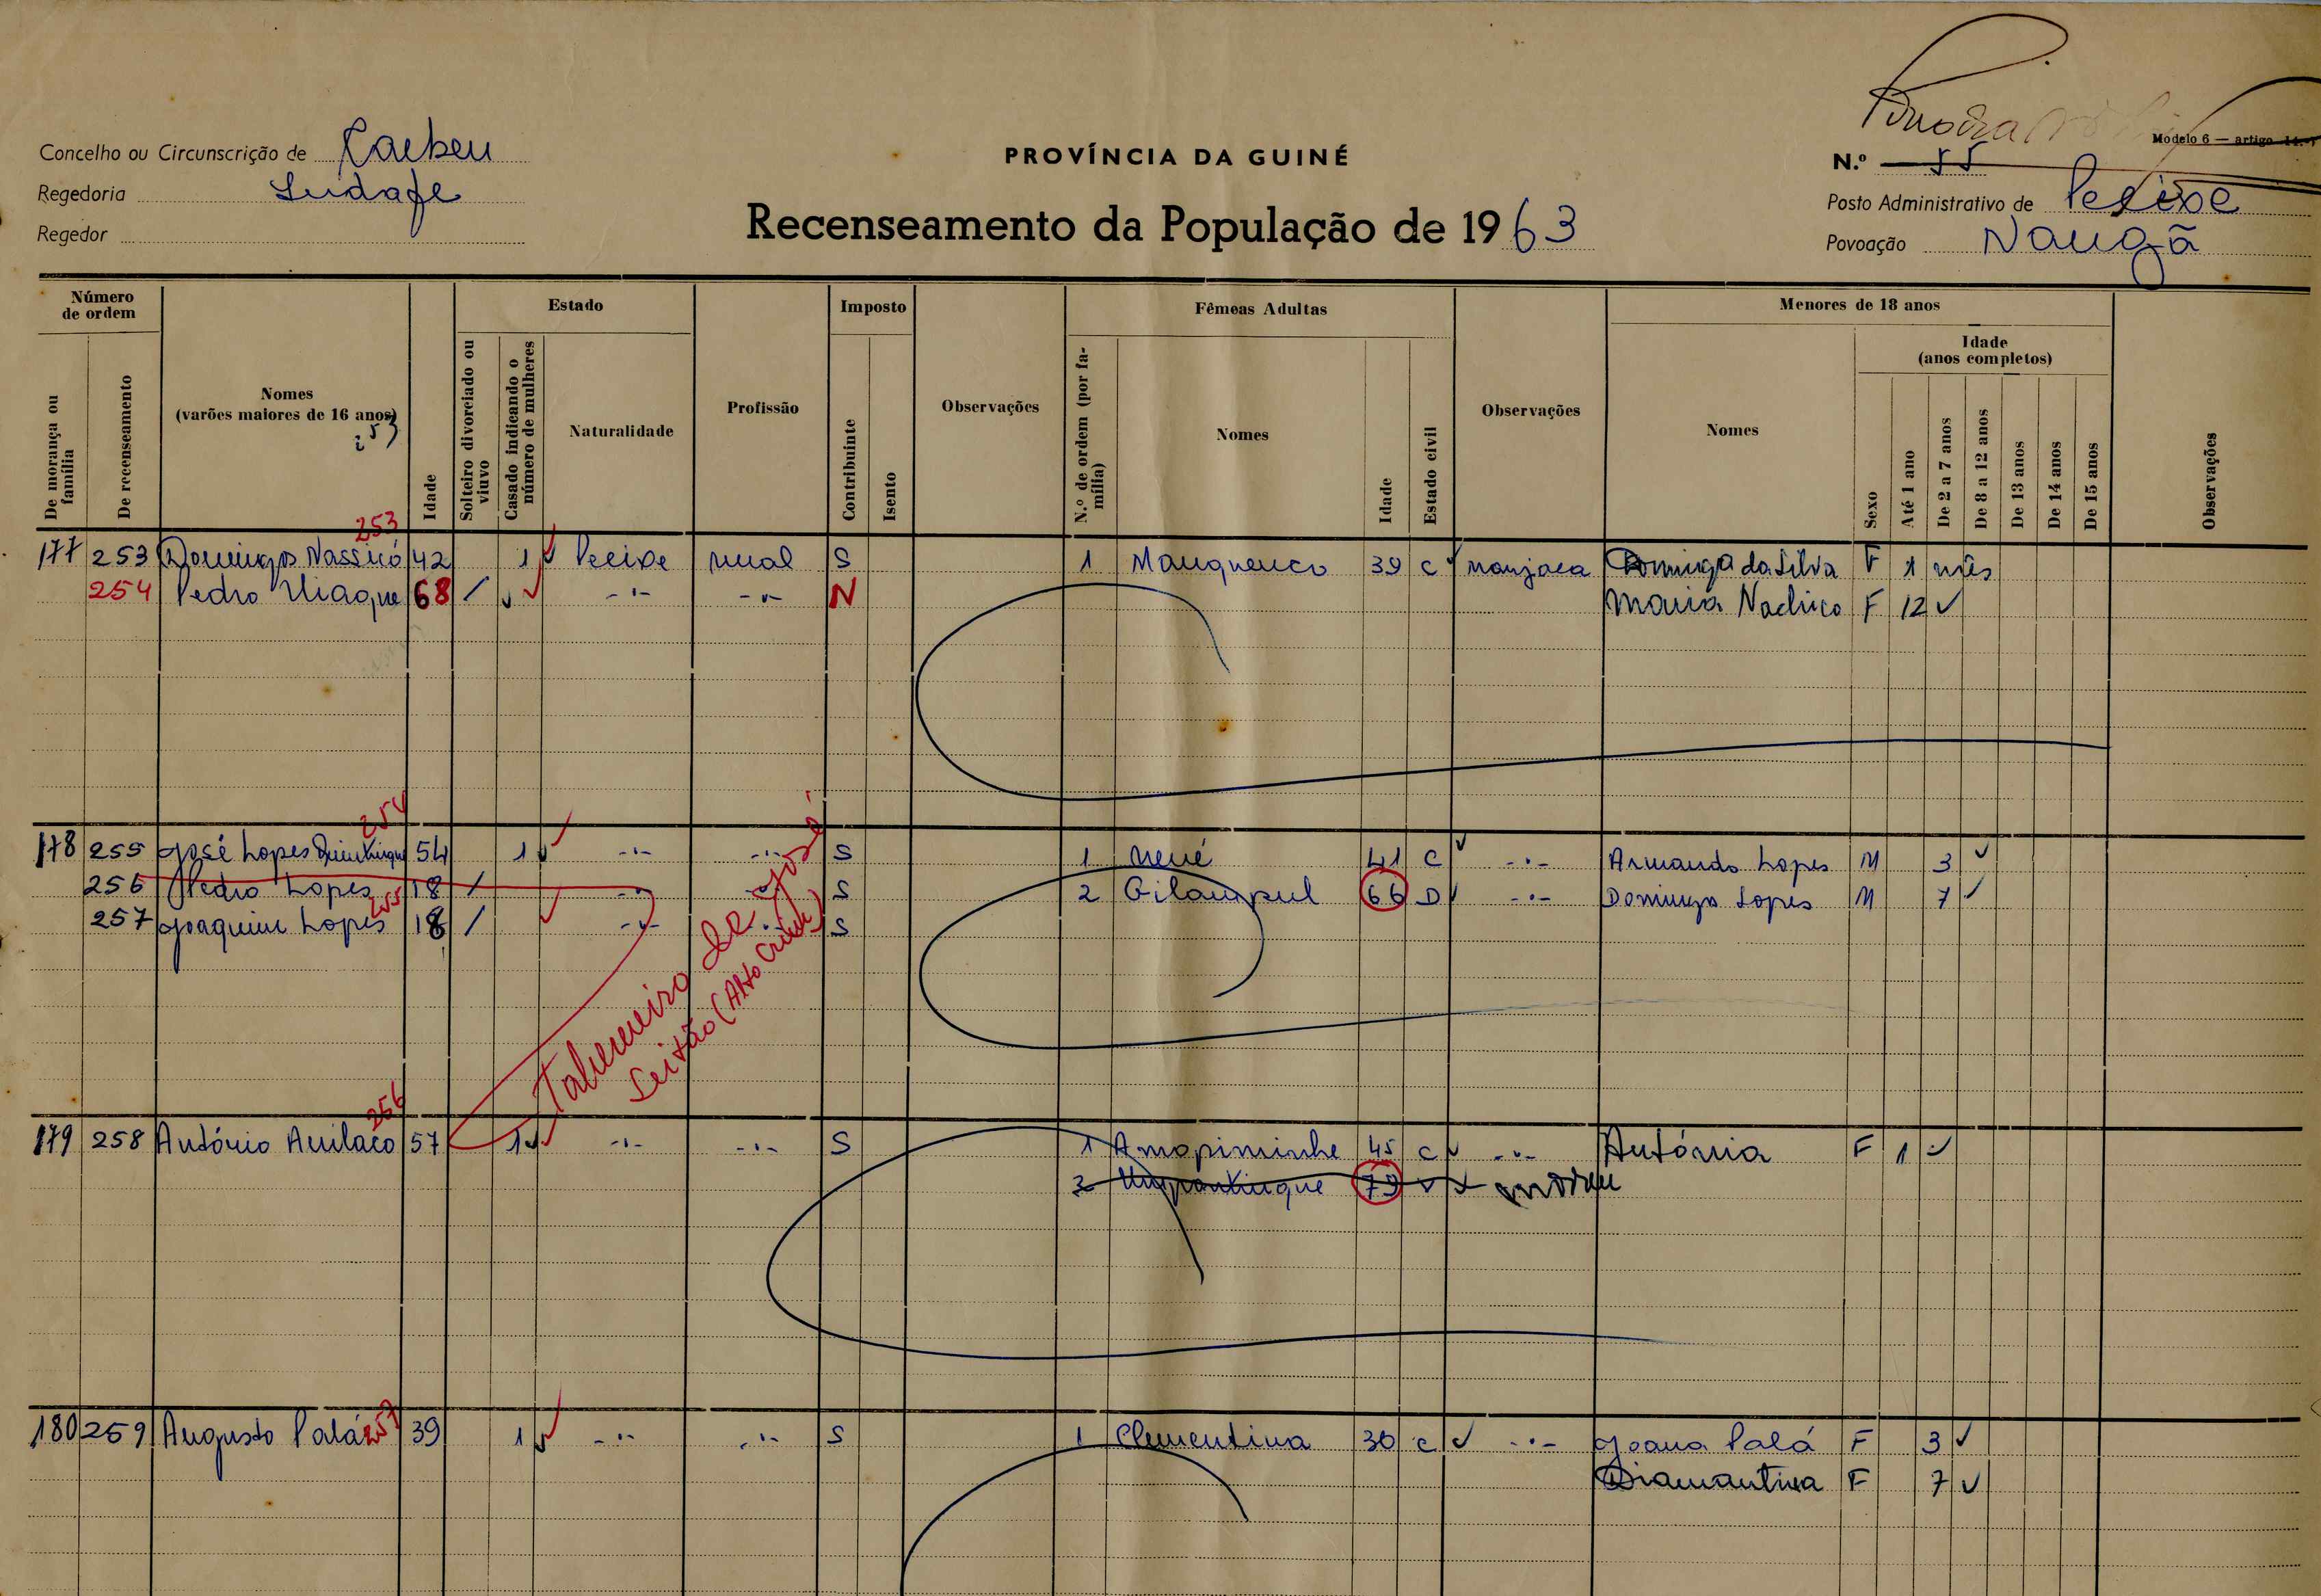 Concelho ou Circunscrição de Cacheu
Regedoria
Regedor
PROVÍNCIA DA GUINÉ
Recenseamento da População de 1963
Modelo 6 — artigo 14.º
N.º 55
Posto Administrativo de Pecixe
Povoação Naugã
Número de ordem
De morança ou família
De recenseamento
Nomes
(varões maiores de 16 anos)
Idade
Estado
Solteiro divorciado ou viuvo
Casado indicando o número de mulheres
Naturalidade
Profissão
Imposto
Contribuinte
Isento
Observações
Fêmeas Adultas
N.º de ordem (por família)
Nomes
Idade
Estado civil
Observações
Menores de 18 anos
Nomes
Sexo
Idade
(anos completos)
Até 1 ano
De 2 a 7 anos
De 8 a 12 anos
De 13 anos
De 14 anos
De 15 anos
Observações
253
177 253 Domingos Nassicó 42 1 Pecixe rural S 1 Mauquenco 39 C manjaca Dominga da Silva F 1 mês
254 Pedro Uiaque 68 / -"- -"- N Maria Nachico F 12
254
178 255 José Lopes Quintingue 54 1 -"- -"- S 1 Nené 41 C -"- Armando Lopes M 3
256 Pedro Lopes 18 / -"- -"- S 2 Gilampul 66 D -"- Domingos Lopes M 7
255
257 Joaquim Lopes 18 / -"- -"- S
Taberneiro de José
Leitão
256
179 258 António Anilaco 57 1 -"- -"- S 1 Amopiminhe 45 C -"- Antónia F 1
2 Umpontingue 79 V
180 259 Augusto Palá 257 39 1 -"- -"- S 1 Clementina 36 C -"- Joana Palá F 3
Diamantina F 7